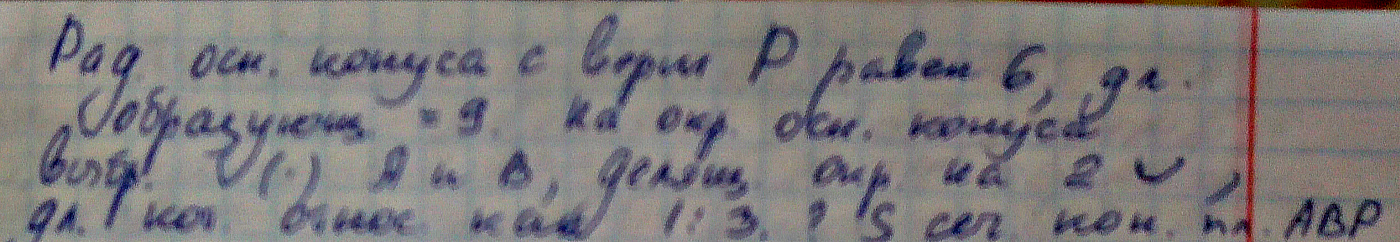 Рад. осн. конуса с верш P равен 6, дл.
образующ = 9. На окр. осн. конуса
выбр. (·) A и B, делящ. окр. на 2 ◡,
дл. кот. относ. как 1:3. ? S сеч. кон. пл. ABP